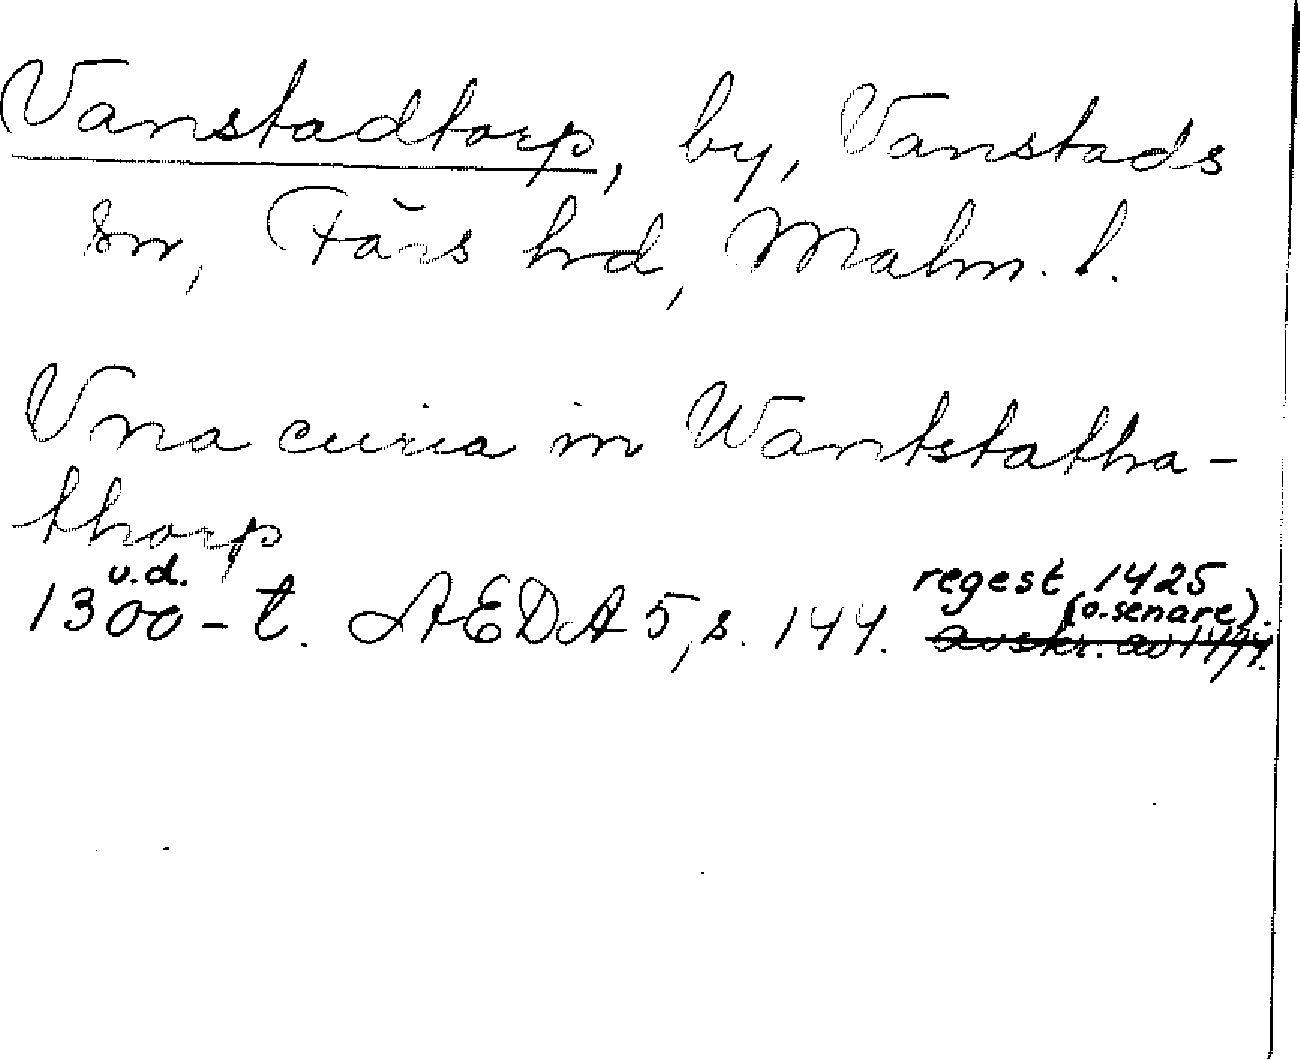 Vanstadtorp, by, Vanstads
sn, Färs hrd, Malm. l.
Vna curia in Wantstatha-
thorp
u.d.
1300-t. AEDA 5, s. 144.
regest 1425
(o. senare).
avskr. av